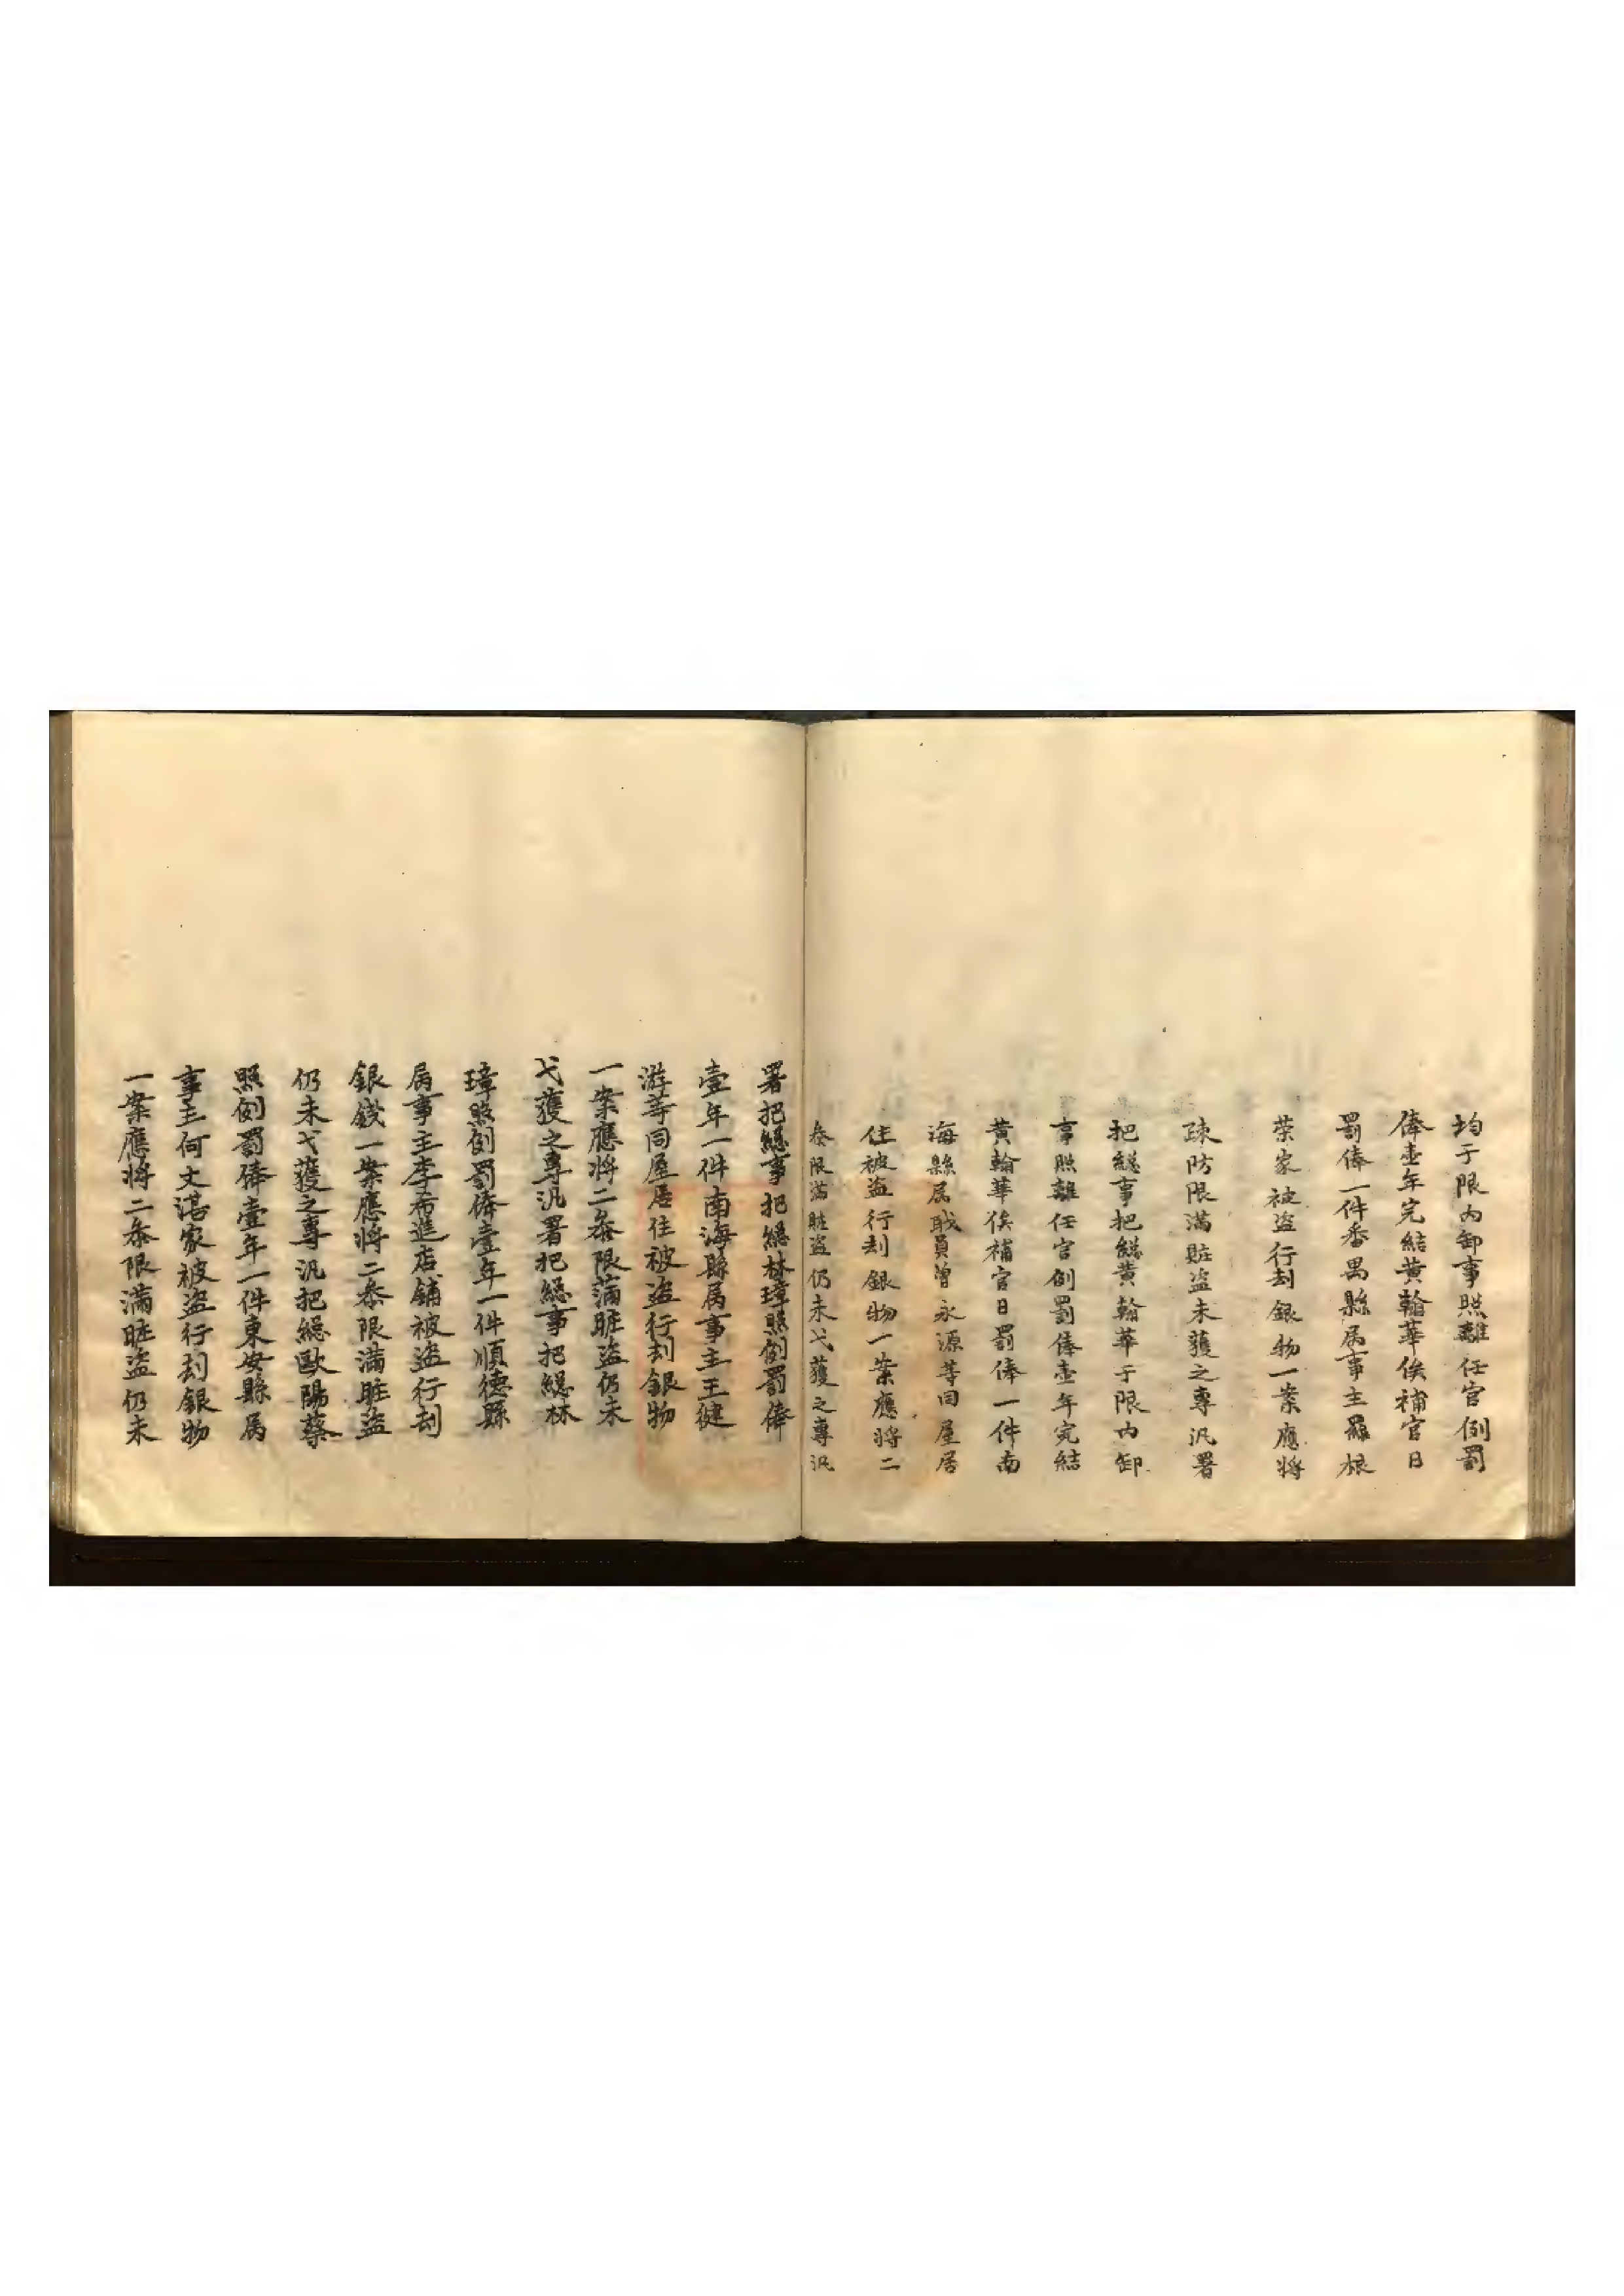 均于限内卸事照離任官例罰
俸壹年完結黄翰華俟補官日
罰俸一件番禺縣属事主羅根
荣家被盗行刦銀物一案應將
疎防限滿賍盗未獲之專汛署
把緫事把緫黄翰華于限内卸
事照離任官例罰俸壹年完結
黄翰華俟補官日罰俸一件南
海縣属戢員曾永源等同屋居
住被盗行刦銀物一案應將二
叅限滿賍盗仍未弋獲之專汛
署把緫事把緫林璋照例罰俸
壹年一件南海縣属事主王健
游等同屋居住被盗行刦銀物
一案應將二叅限滿賍盗仍未
弋獲之專汛署把緫事把緫林
璋照例罰俸壹年一件順德縣
属事主李希進店舖被盗行刦
銀錢一案應將二叅限滿賍盗
仍未弋獲之專汛把緫歐陽蔡
照例罰俸壹年一件東安縣属
事主何文湛家被盗行刦銀物
一案應將二叅限滿賍盗仍未